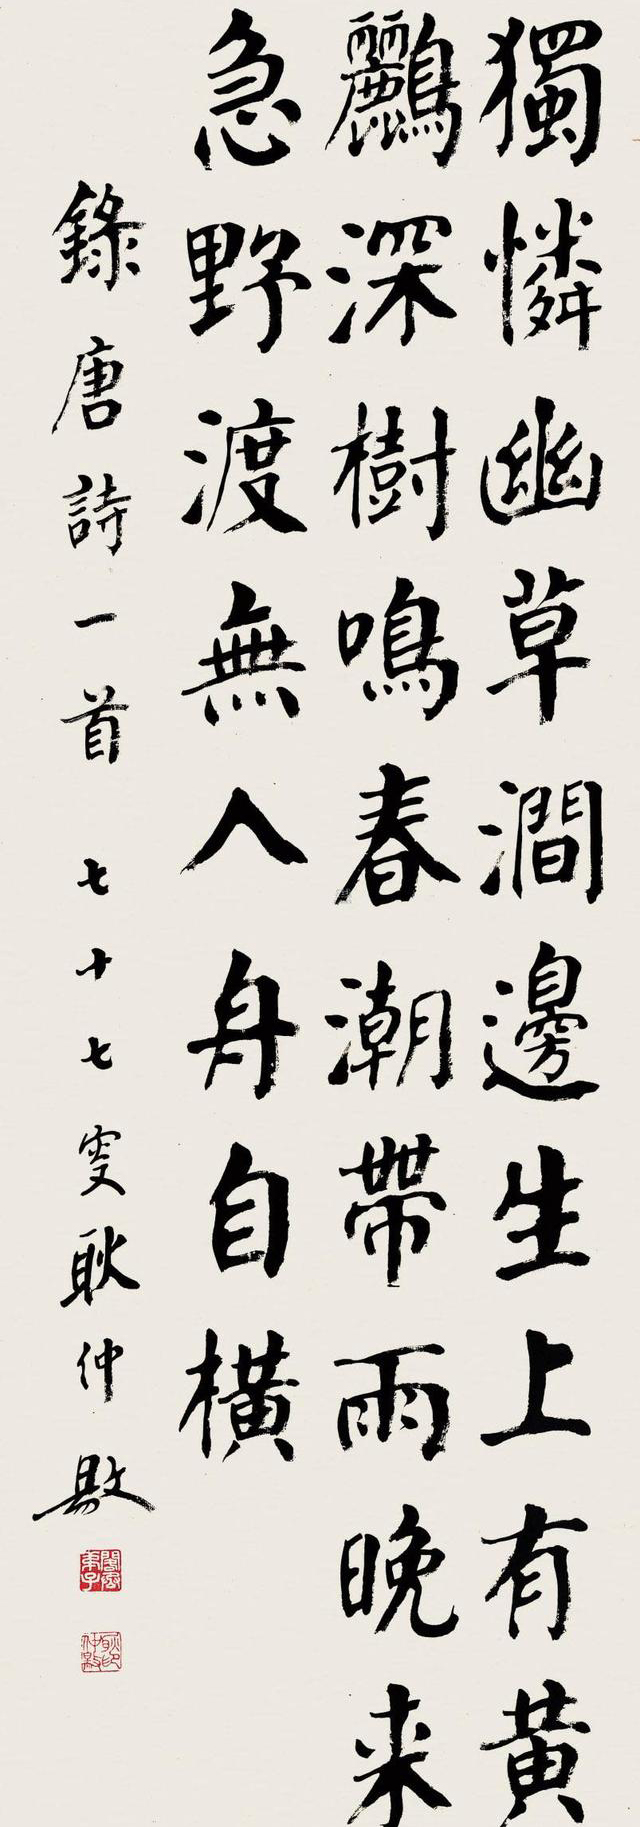 獨憐幽草澗邊生上有黃
鸝深樹鳴春潮帶雨晚来
急野渡無人舟自橫
錄唐詩一首 七十七叟耿仲敭